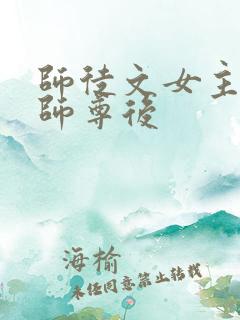 師徒文女主
師尊後
海榆
未经同意禁止转载